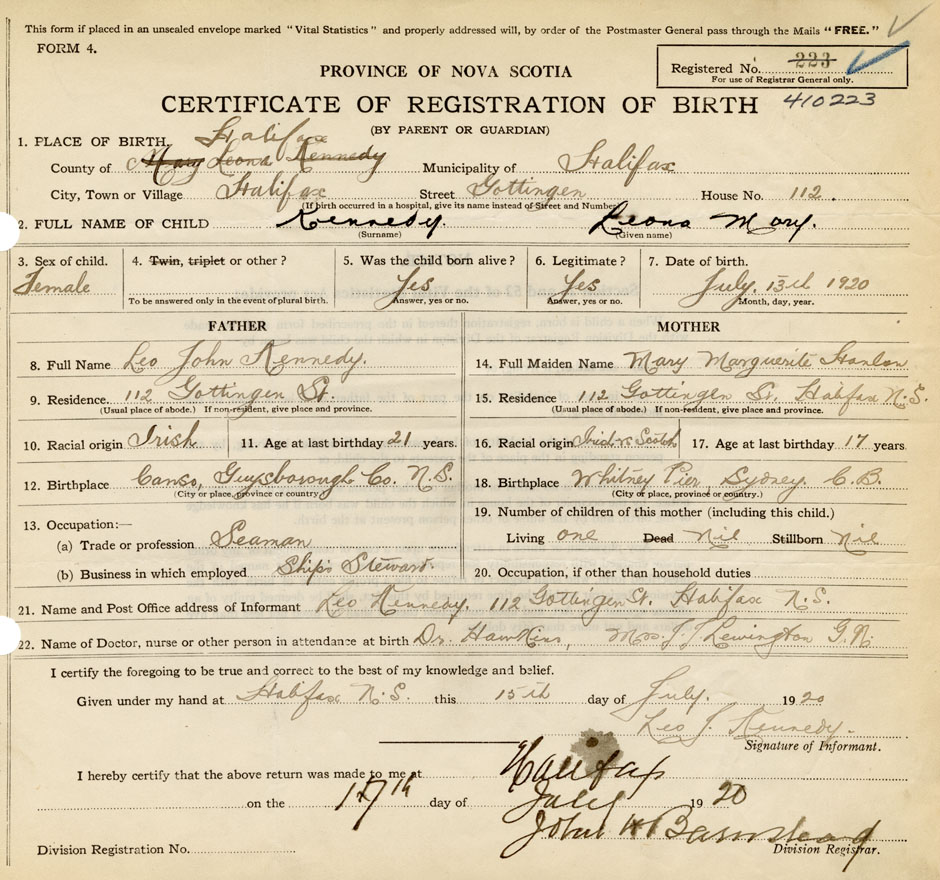 This form if placed in an unsealed envelope marked "Vital Statistics" and properly addressed will, by order of the Postmaster General pass through the Mails "FREE."
FORM 4.
Registered No. 223
For use of Registrar General only.
PROVINCE OF NOVA SCOTIA
CERTIFICATE OF REGISTRATION OF BIRTH 410223
(BY PARENT OR GUARDIAN)
1. PLACE OF BIRTH, Halifax
County of Mary Leona Kennedy Municipality of Halifax
City, Town or Village Halifax Street Gottingen House No. 112.
(If birth occurred in a hospital, give its name instead of Street and Number)
2. FULL NAME OF CHILD Kennedy. Leona Mary.
(Surname) (Given name)
3. Sex of child. 4. Twin, triplet or other? 5. Was the child born alive? 6. Legitimate? 7. Date of birth.
Female Yes Yes July. 13th 1920
To be answered only in the event of plural birth. Answer, yes or no. Answer, yes or no. Month, day, year.
FATHER MOTHER
8. Full Name Leo John Kennedy. 14. Full Maiden Name Mary Marguerite Hanlon
9. Residence. 112 Gottingen St. 15. Residence 112 Gottingen St. Halifax N.S.
(Usual place of abode.) If non-resident, give place and province. (Usual place of abode.) If non-resident, give place and province.
10. Racial origin Irish 11. Age at last birthday 21 years. 16. Racial origin Scotch 17. Age at last birthday 17 years
12. Birthplace Canso, Guysborough Co. N.S. 18. Birthplace Whitney Pier, Sydney C.B.
(City or place, province or country) (City or place, province or country.)
13. Occupation:— 19. Number of children of this mother (including this child.)
(a) Trade or profession Seaman Living one Dead Nil Stillborn Nil
(b) Business in which employed Ships Steward. 20. Occupation, if other than household duties
21. Name and Post Office address of Informant Leo Kennedy. 112 Gottingen St. Halifax N.S.
22. Name of Doctor, nurse or other person in attendance at birth Dr. Hawkins, Mrs. J. J. Lewington G.N.
I certify the foregoing to be true and correct to the best of my knowledge and belief.
Given under my hand at Halifax N.S. this 15th day of July. 1920
Leo J. Kennedy.
Signature of Informant.
I hereby certify that the above return was made to me at Halifax
on the 17th day of July 1920
John H Barnstead
Division Registration No. Division Registrar.